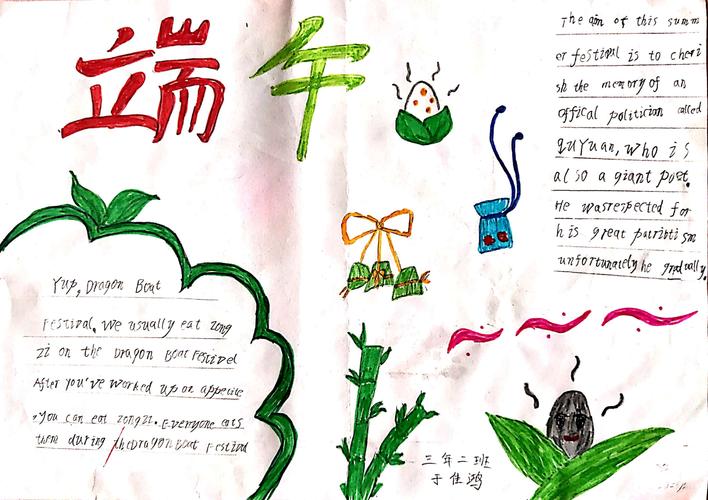 端午
The aim of this summ
er festival is to cheri
sh the memory of an
offical politician called
QUYUan, who is
also a giant poet.
He wasrespected for
his great patriotism
unfortunately he gradually,
Yup, Dragon Boat
Festival, We usually eat zong
zi on the Dragon Boat Festivel
After you've worked up on appetite
,You can eat zongzi. Everyone eats
them during theDragon Boat Festival
三年二班
于佳鸿